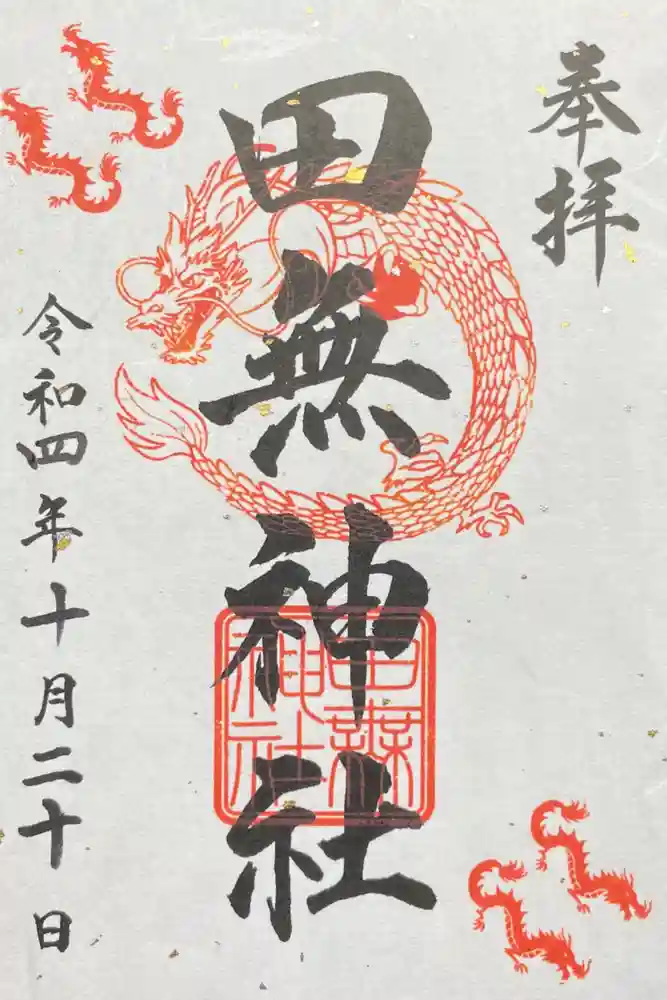 奉拝
田無神社
田無神社
令和四年十月二十日